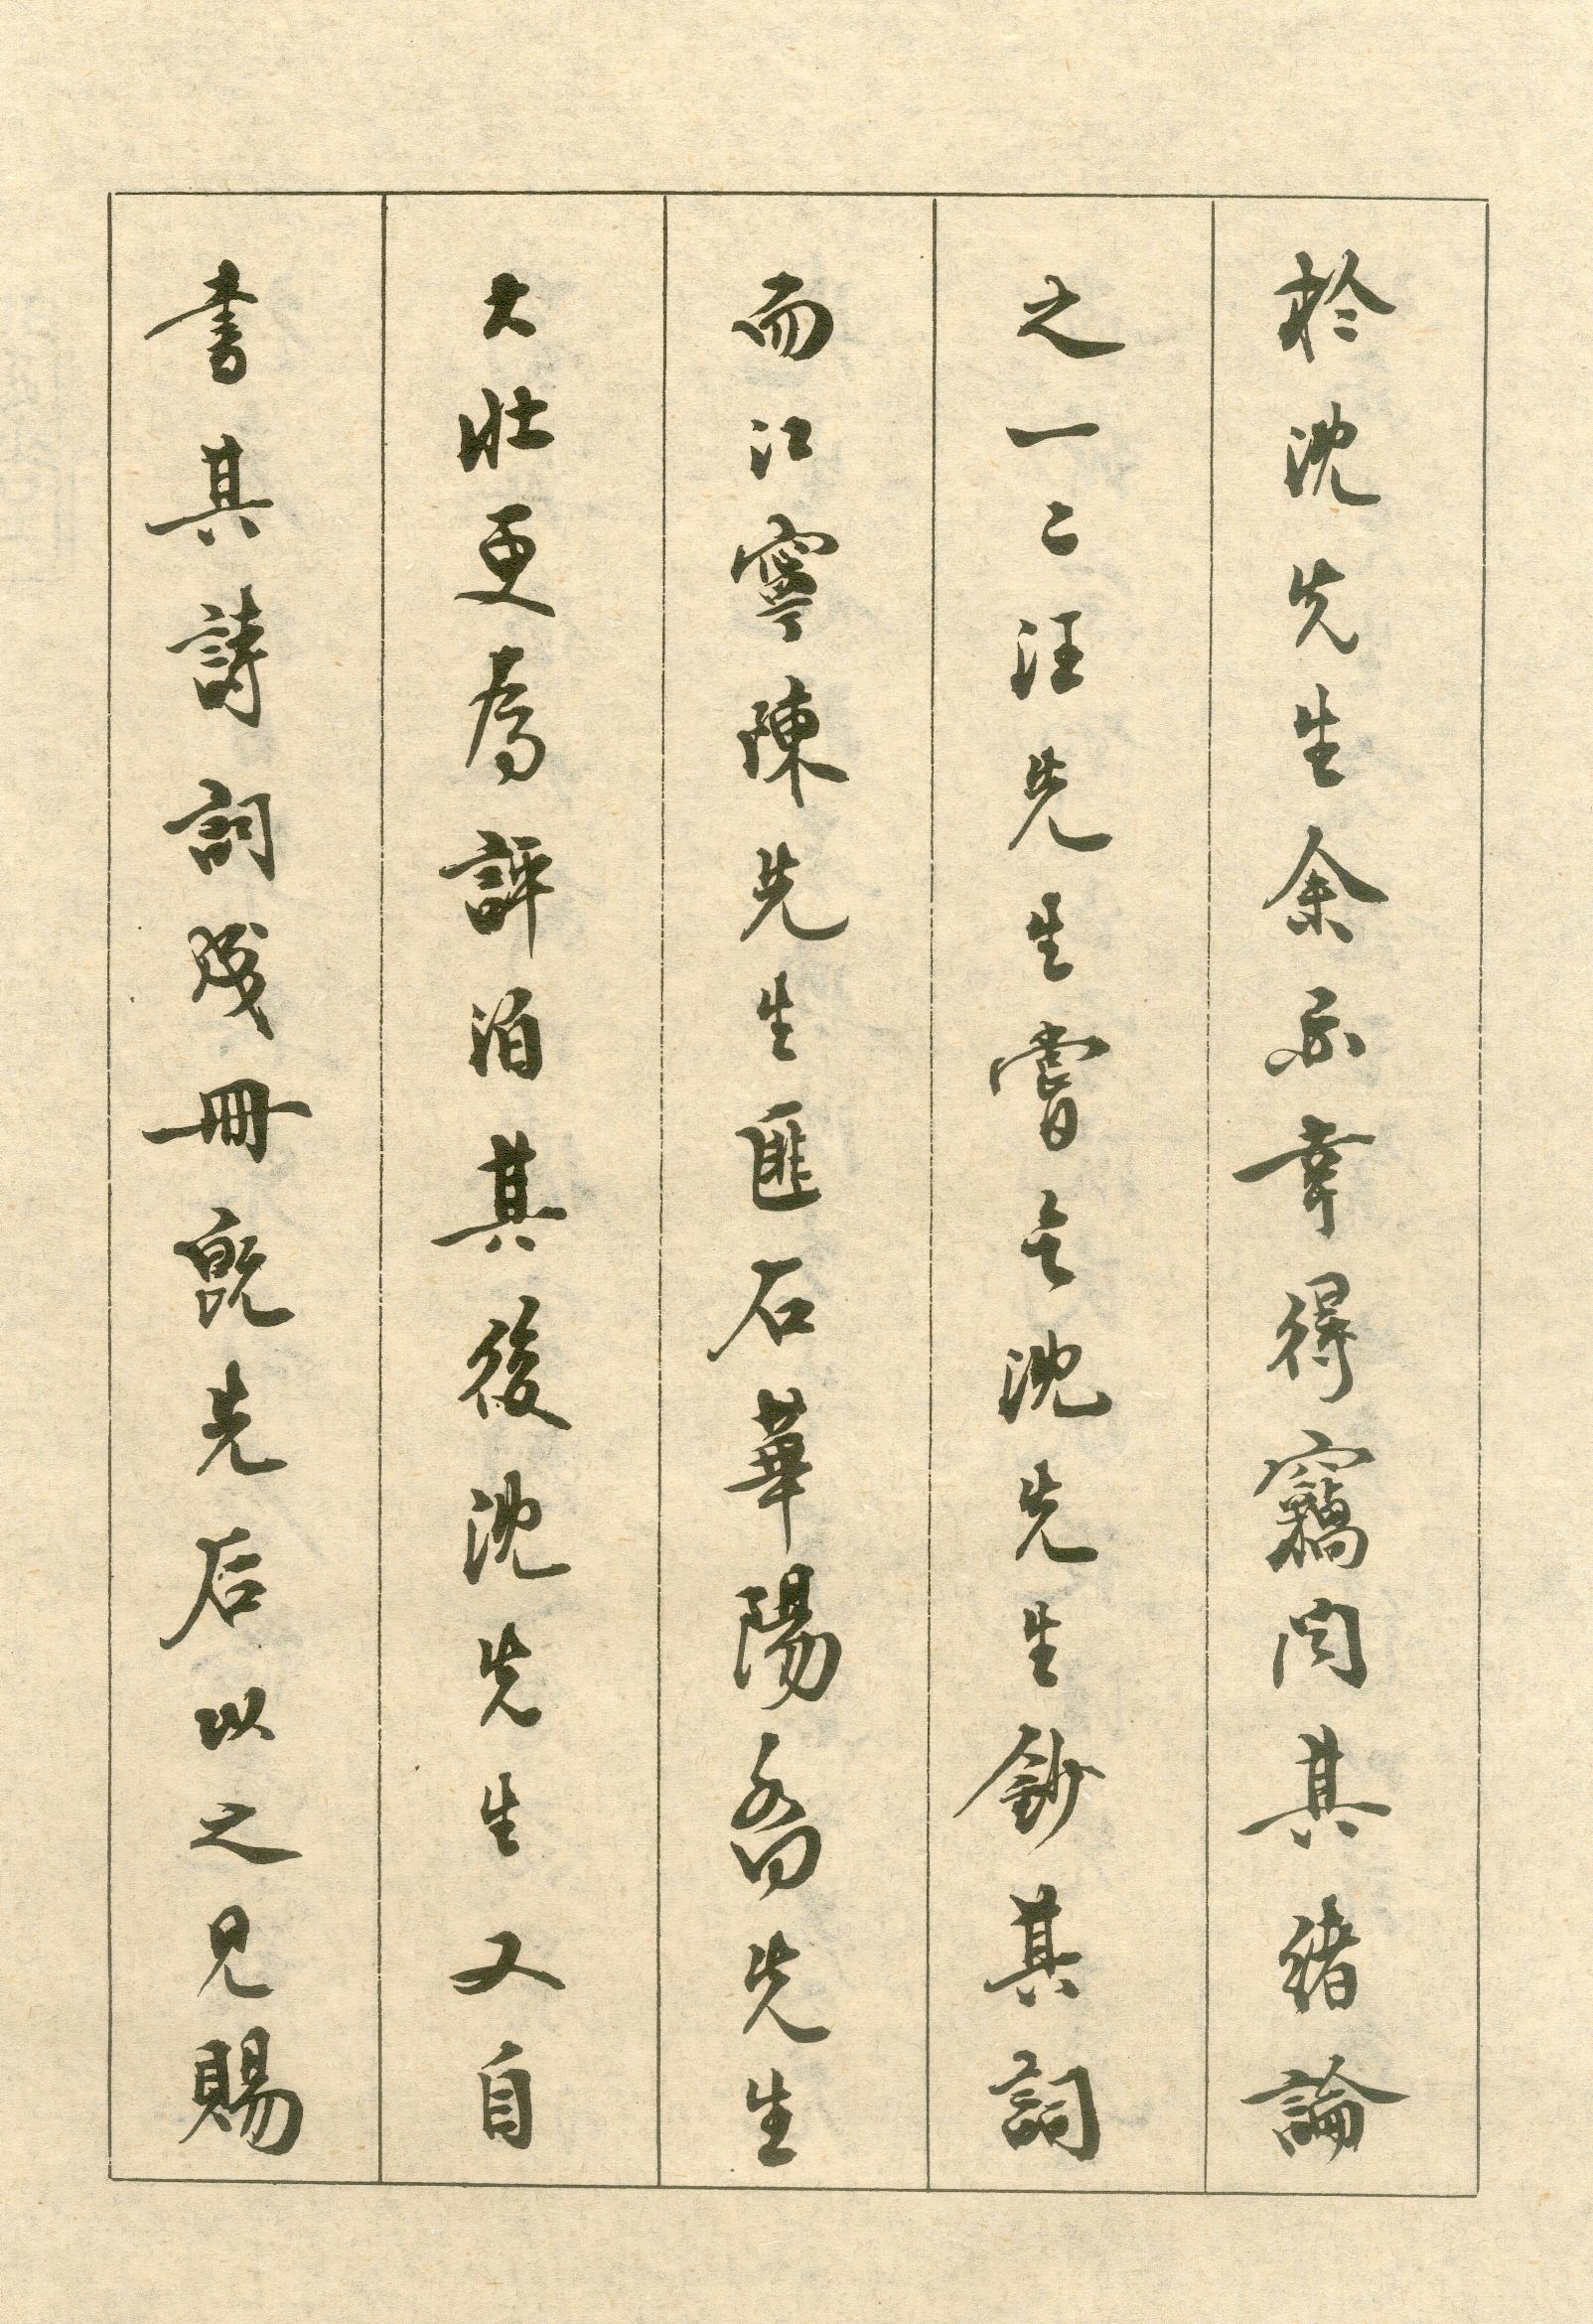 於沈先生余亦幸得竊闻其緒論
之一二汪先生嘗乞沈先生鈔其詞
而江寧陳先生匪石華陽喬先生
大壯更為評泊其後沈先生又自
書其詩詞成冊既先后以之見賜